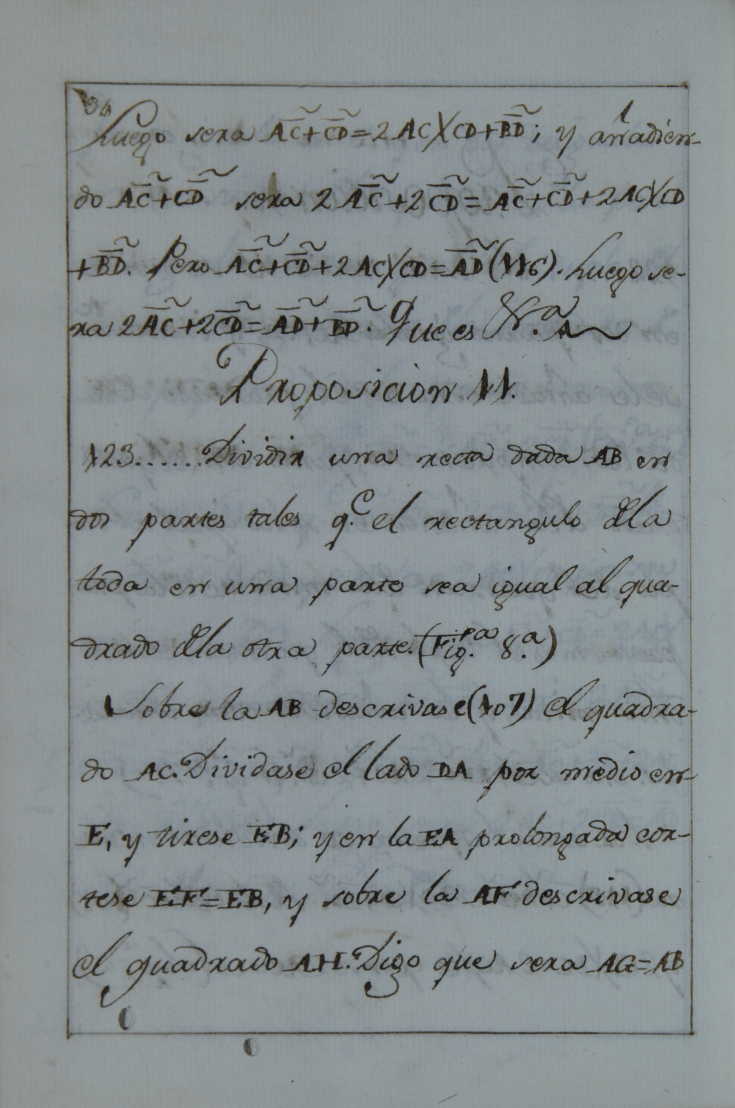 94
Luego sera AC̃+CD̃=2AC╳CD+BD̃; y añadien-
do AC̃+CD̃ sera 2AC̃+2CD̃=AC̃+CD̃+2AC╳CD
+BD̃. Pero AC̃+CD̃+2AC╳CD=AD̃(116). Luego se-
ra 2AC̃+2CD̃=AD̃+BD̃. Que es &.ª
Proposicion 11.
123......Dividir una recta dada AB en
dos partes tales q.e el rectangulo dela
toda en una parte sea igual al qua-
drado dela otra parte.(Fig.ra 8.a)
Sobre la AB descrivase(107) el quadra-
do AC. Dividase el lado DA por medio en
E, y tirese EB; y en la EA prolongada cor-
tese EF=EB, y sobre la AF descrivase
el quadrado AH. Digo que sera AG=AB